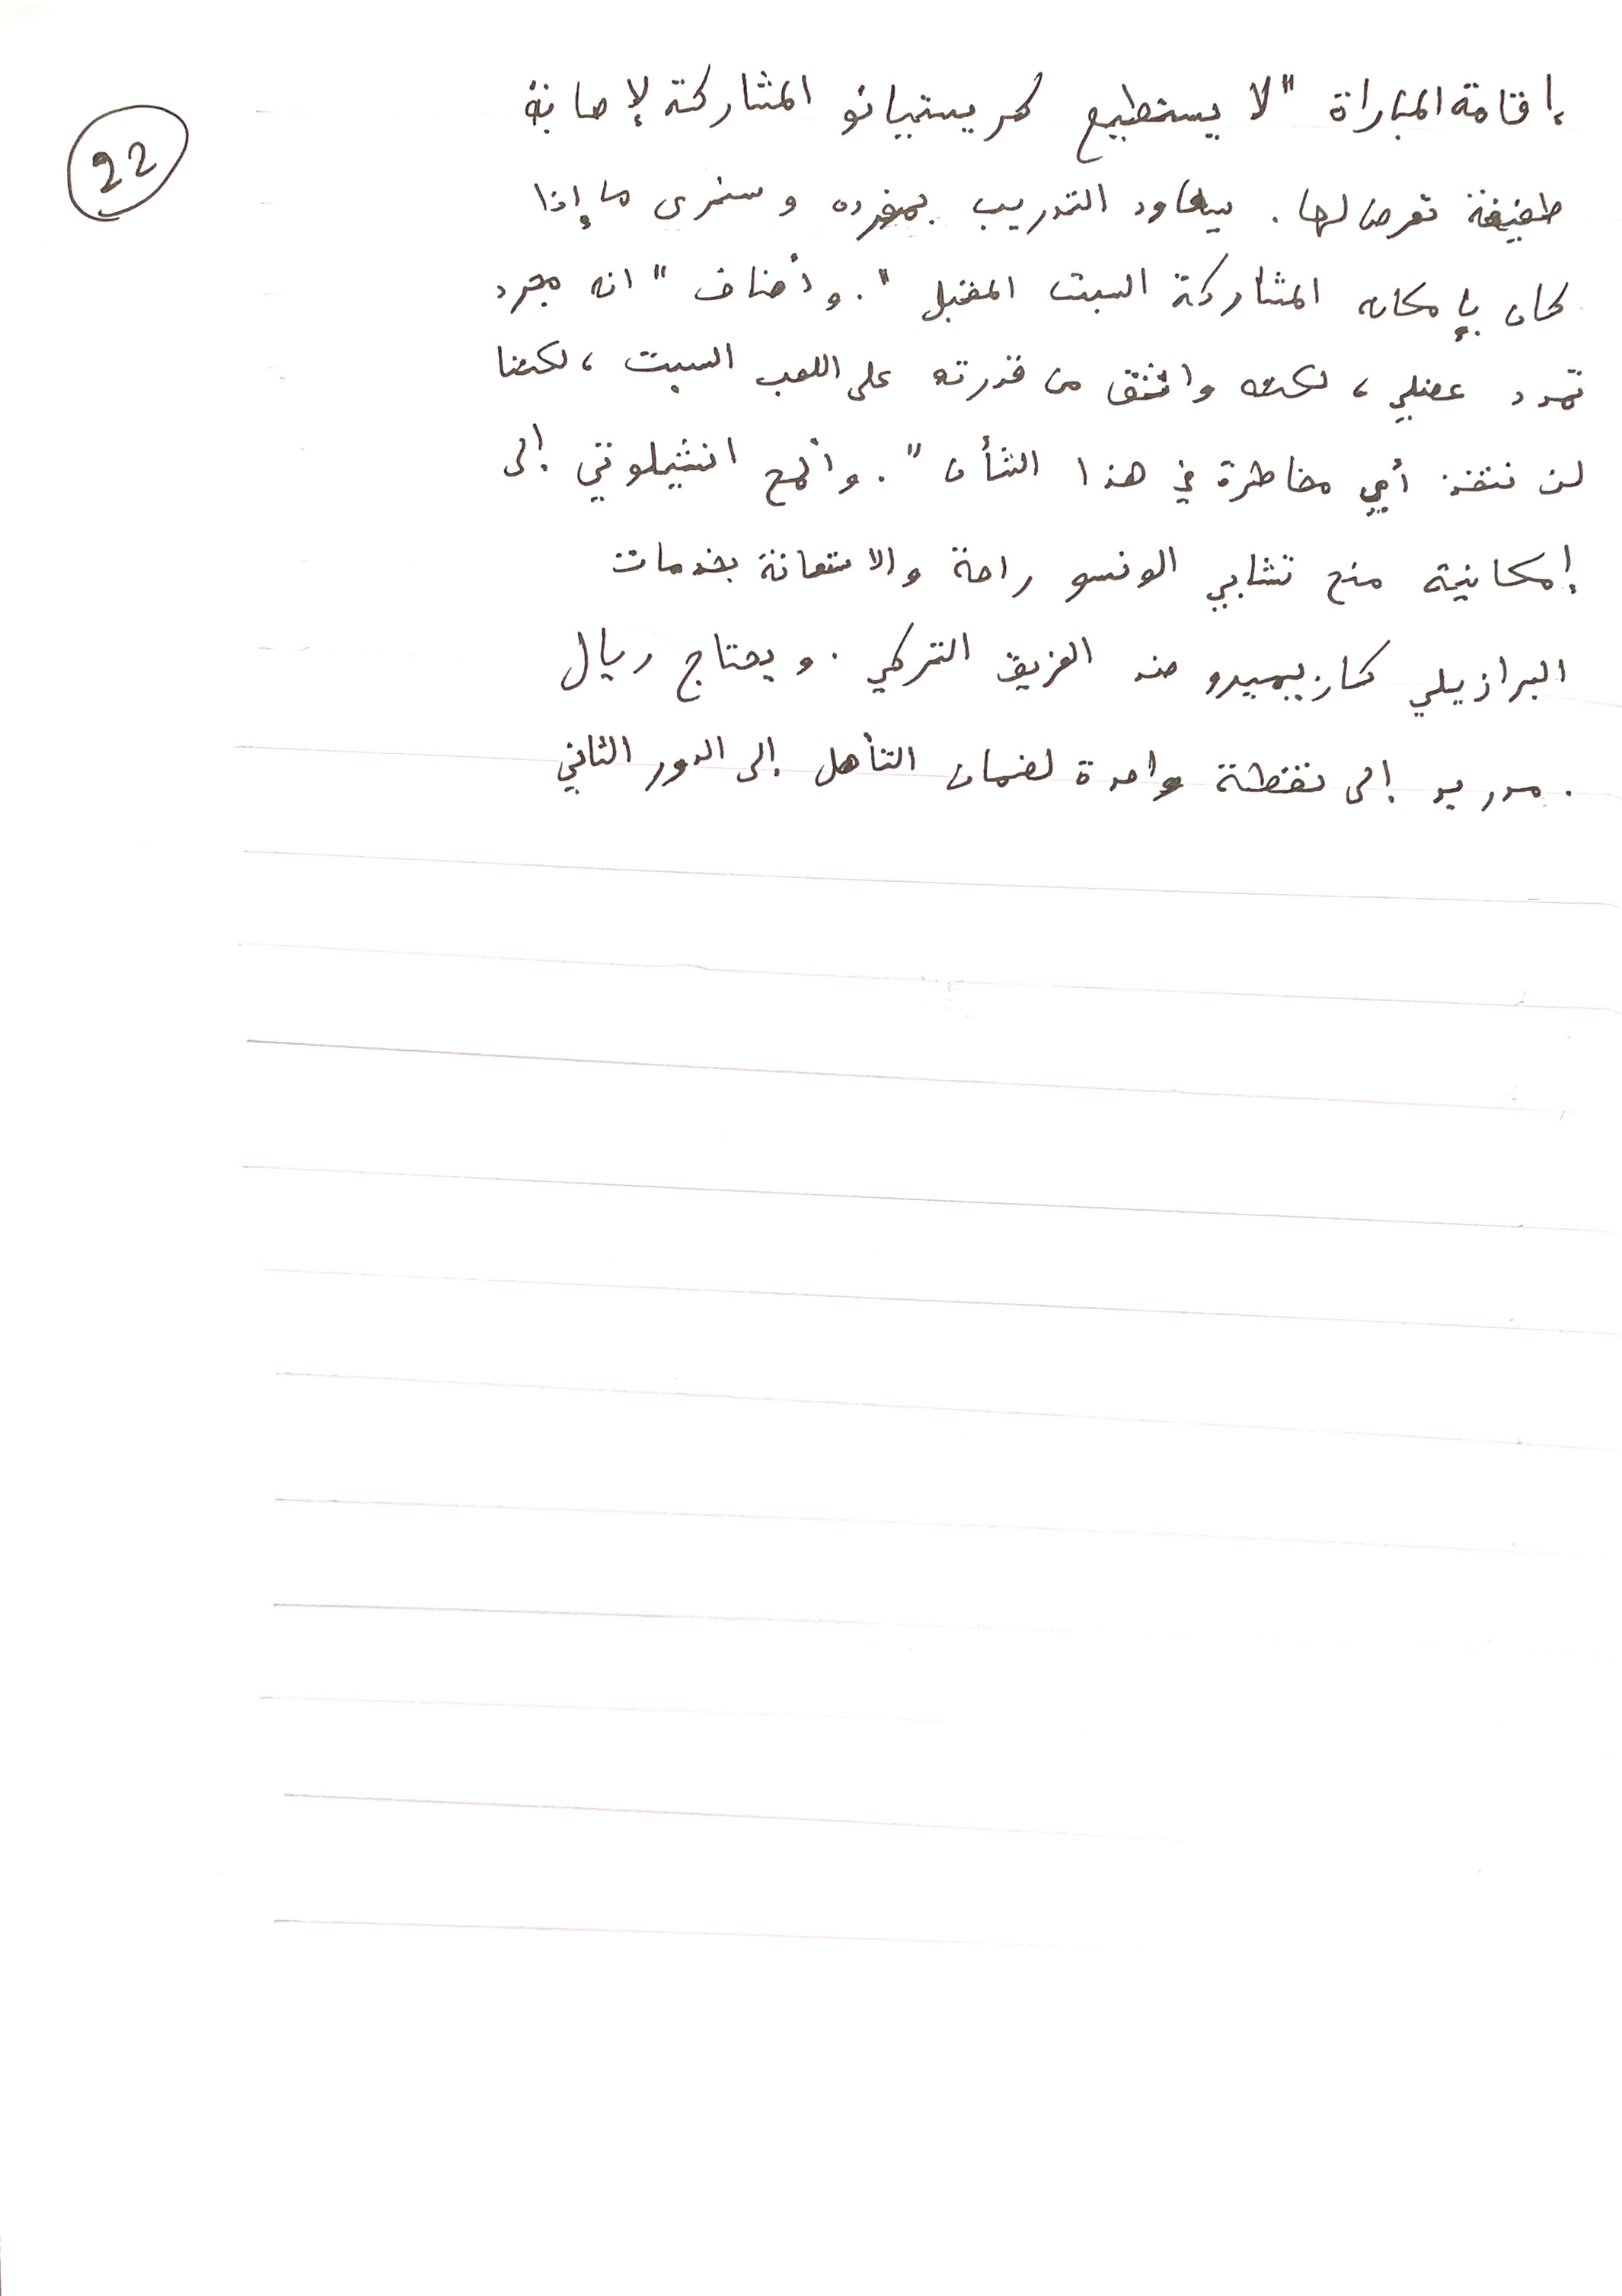 22
إقامة المباراة "لا يستطيع كريستيانو المشاركة لإصابة
طفيفة تعرض لها. سيعاود التدريب بمفرده وسنرى ما إذا
كان بإمكانه المشاركة السبت المقبل". وأضاف "انه مجرد
تمدد عضلي، لكنه واثق من قدرته على اللعب السبت، لكننا
لن نتخذ أي مخاطرة في هذا الشأن". وألمح انشيلوتي إلى
إمكانية منح تشابي الونسو راحة والاستعانة بخدمات
البرازيلي كازيميرو ضد الفريق التركي. ويحتاج ريال
مدريد إلى نقطة واحدة لضمان التأهل إلى الدور الثاني.